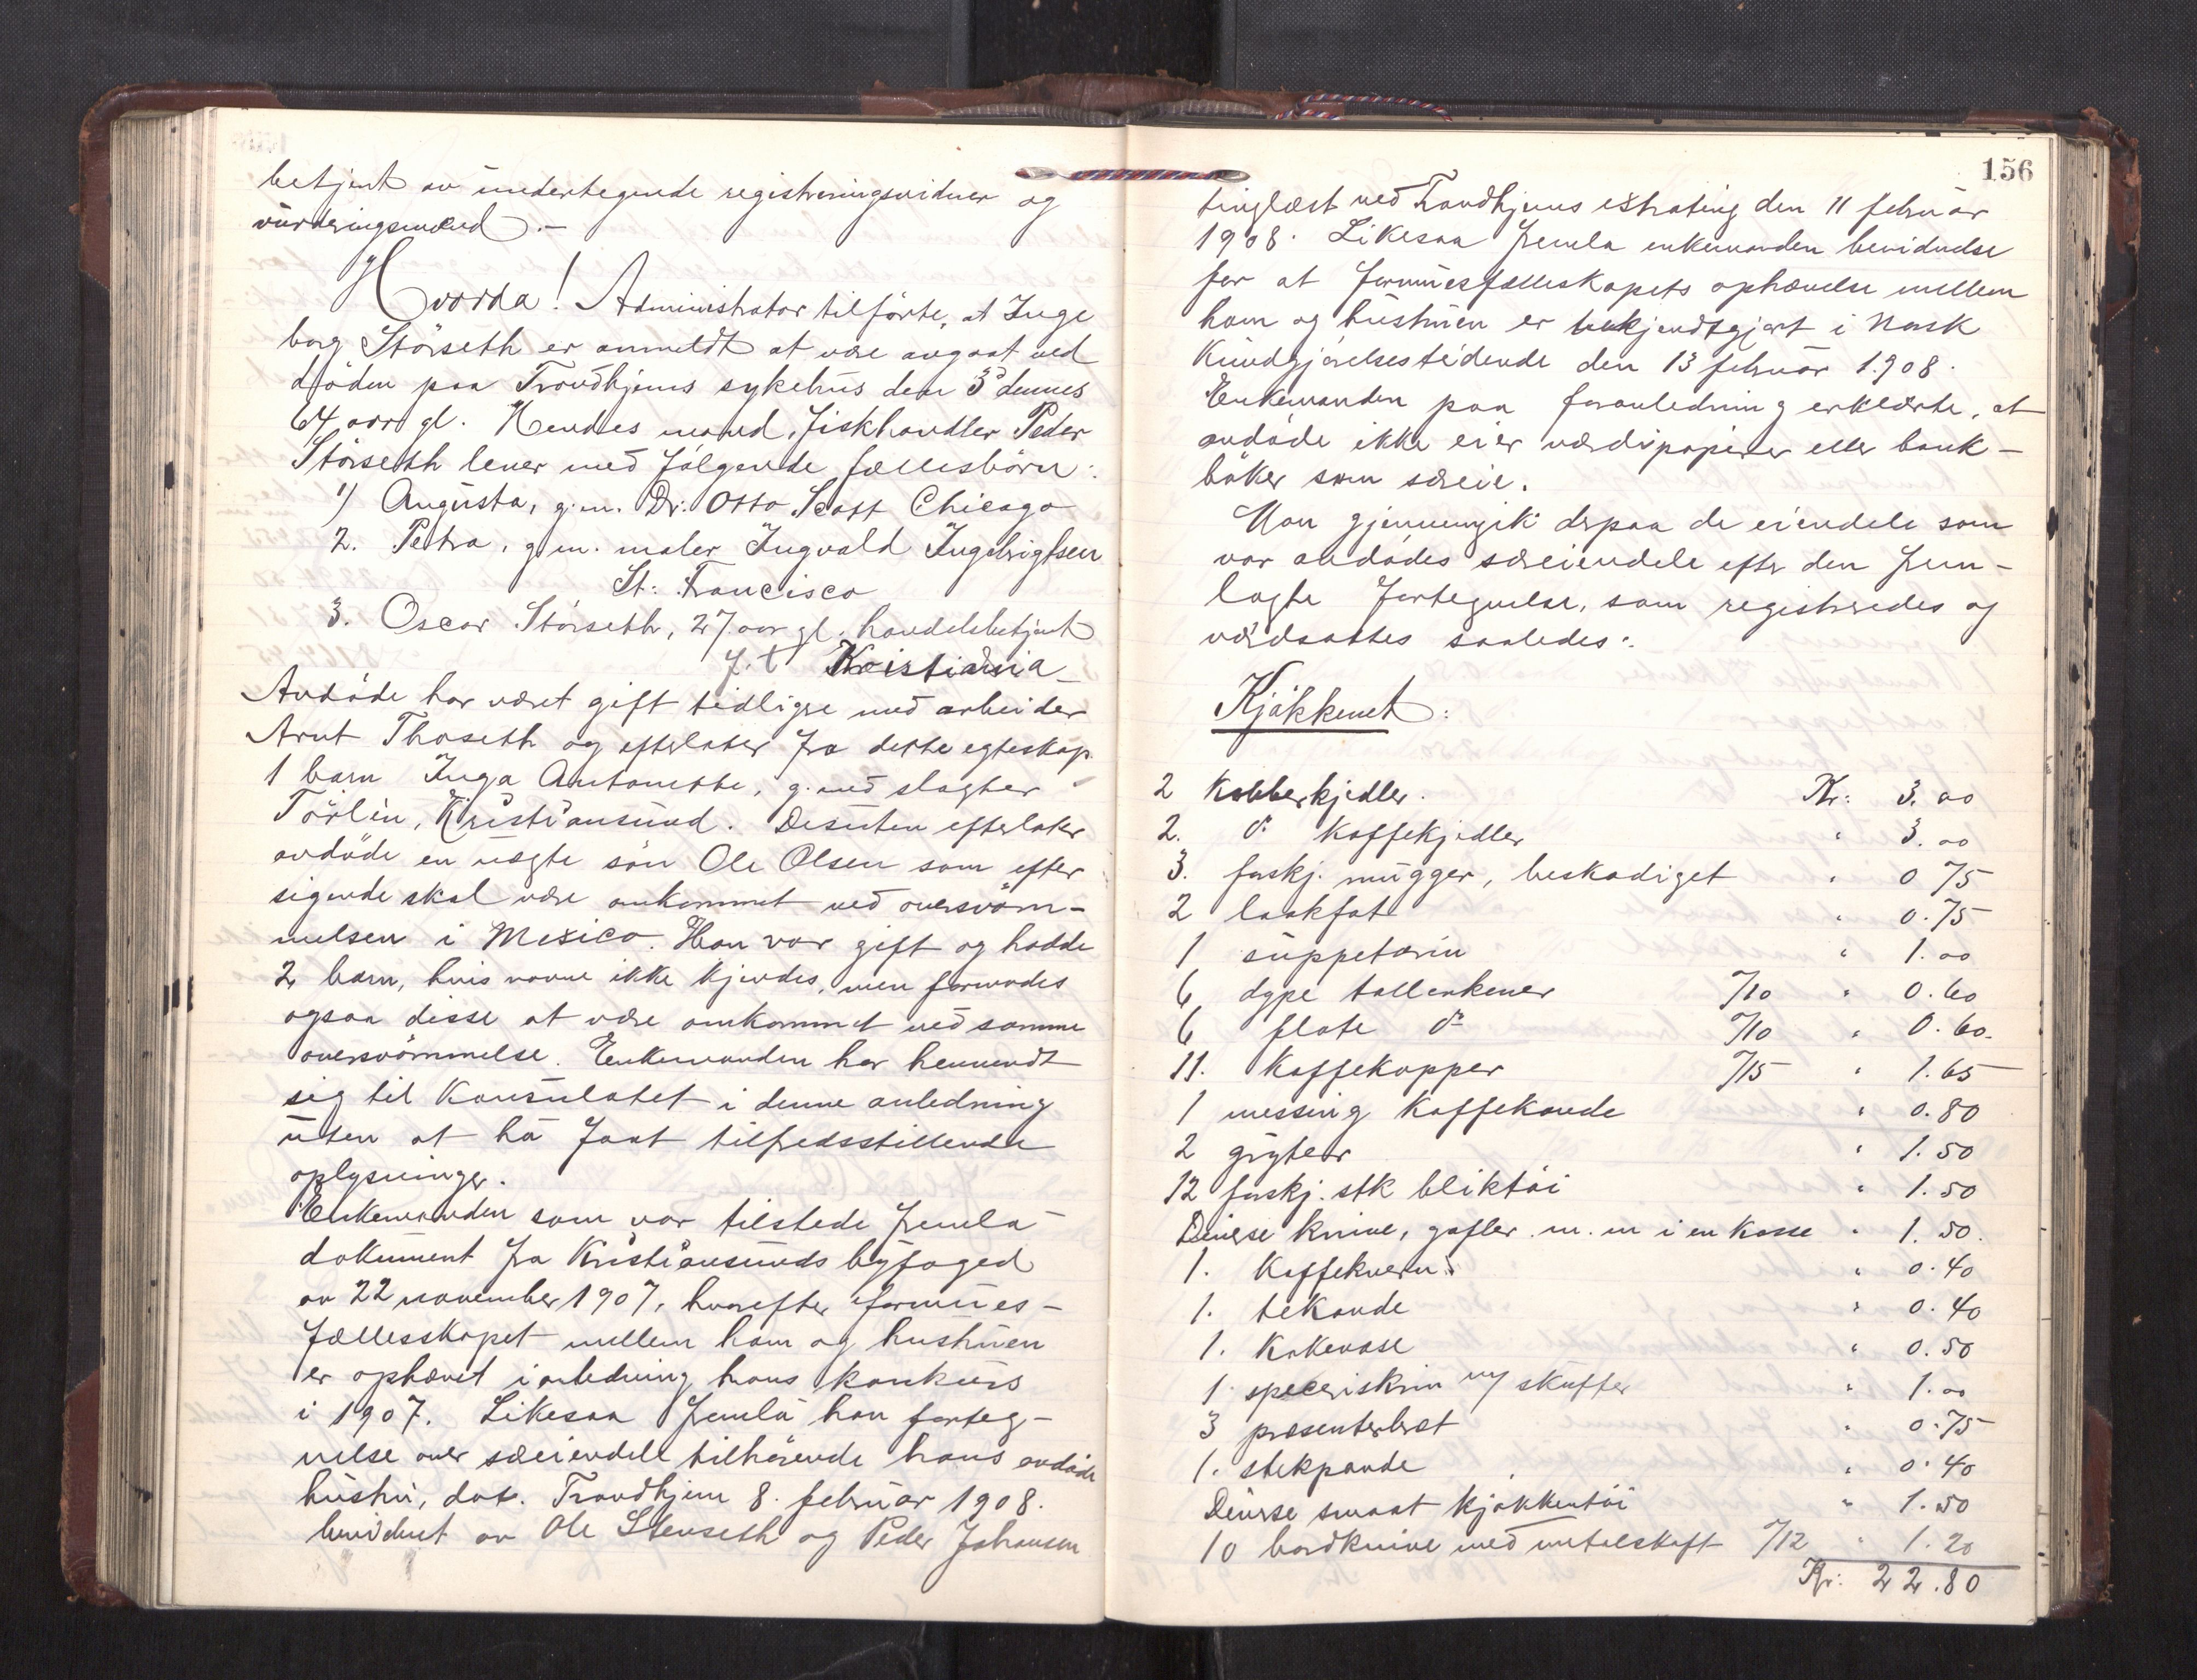 betjent av undertegnede registreringsvidner og
vurderingsmænd.-
Hvorda! Administrator tilførte, at Inge
borg Störseth er anmeldt at være avgaat ved
döden paa Trondhjems sykehus den 3 dennes
64 aar gl. Hendes mand, fiskhandler Peder
Störseth lever med følgende fællesbörn:
1) Augusta, g.m. Dr. Otto Scott Chicago
2. Petra, g.m. maler Ingvald Ingebrigtsen
St. Francisco
3. Oscar Störseth, 27 aar gl. handelsbetjent
f.t. Kristiania
Avdöde har været gift tidligere med arbeider
Arnt Thoseth og efterlater fra dette egteskap
1 barn Inga Antonette, g. med slagter
Törlin, Kristiansund. Desuten efterlater
avdöde en uegte sön Ole Olsen som efter
sigende skal være omkommet ved oversvöm-
melsen i Mexico. Han var gift og hadde
2 barn, hvis navne ikke kjendes, men formodes
ogsaa disse at være omkommet ved samme
oversvömmelse. Enkemanden har henvendt
sig til Konsulatet i denne anledning
uten at ha faat tilfredsstillende
oplysninger.
Enkemanden som var tilstede fremla
dokument fra Kristiansunds byfoged
av 22 november 1907, hvorefter formues-
fællesskapet mellem ham og hustruen
er ophævet i anledning hans konkurs
i 1907. Likesaa fremla han forteg-
nelse over særeiendele tilhørende hans avdöde
hustru, dat. Trondhjem 8. februar 1908.
bevidnet av Ole Stenseth og Peder Johansen
156
tinglæst ved Trondhjems ekstrating den 11 februar
1908. Likesaa fremla enkemanden bevidnelse
for at formuesfælleskapets ophævelse mellem
ham og hustruen er bekjendtgjort i Norsk
Kundgjørelsestidende den 13 februar 1908.
Enkemanden paa foranledning erklærte, at
avdöde ikke eier værdipapirer eller bank-
bøker som særeie.
Man gjennemgik derpaa de eiendele som
var avdødes særeiendele efter den frem-
lagte fortegnelse, som registreredes og
værdsattes saaledes:
Kjøkkenet:
2 Kobberkjedler. Kr: 3.00
2. do Kaffekjedler " 3.00
3. forskj. mugger, beskadiget " 0 75
2 laakfat " 0.75
1 suppeterin " 1.00
6 dype tallerkener 7/10 " 0.60
6 flate do 7/10 " 0.60.
11. Kaffekopper 7/15 " 1.65
1 messing Kaffekande " 0.80
2 gryter " 1.50
12 forskj. stk bliktöi " 1.50
Diverse knive, gafler m.m i en Kasse " 1.50.
1. Kaffekvern " 0.40
1. tekande " 0.40
1. Kakevase " 0.50
1. speceriskrin m/ skuffer " 1.00
3 præsenterbret " 0.75
1. stekpande " 0.40
Diverse smaat kjøkkentöi " 1.50
10 bordknive med metalskaft 7/12 " 1.20
Kr: 22.80